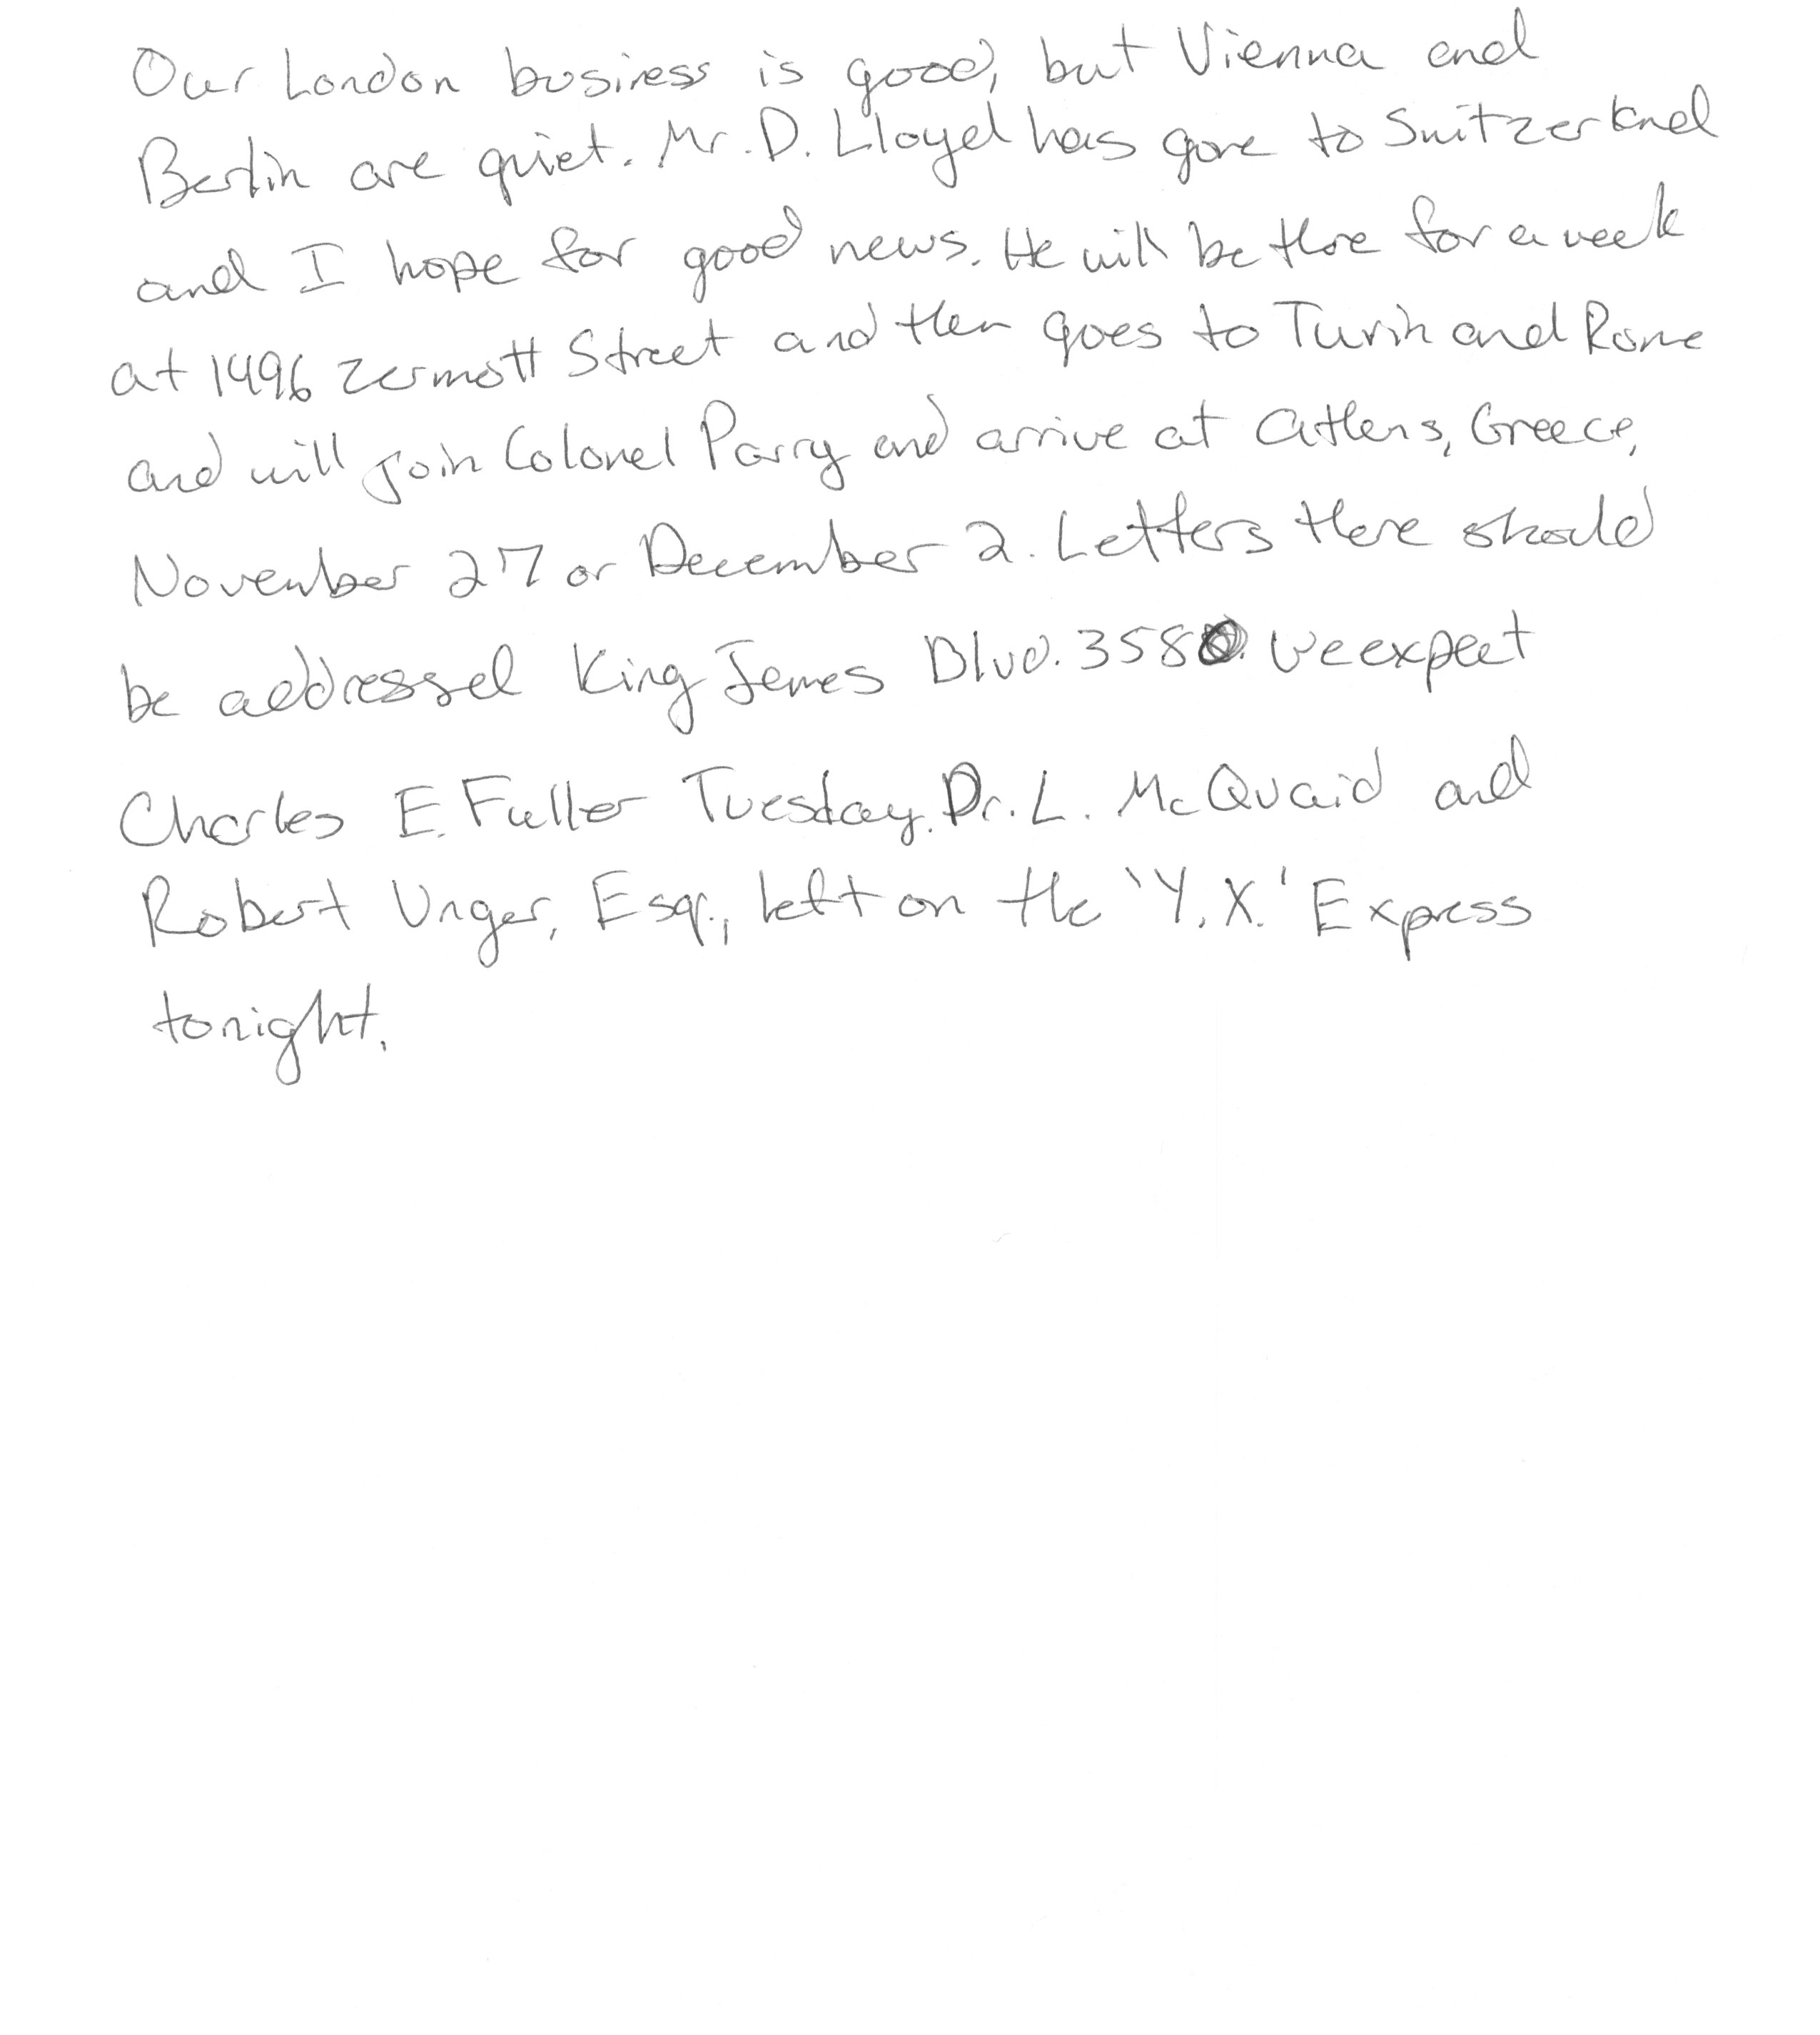 Our London business is good, but Vienna and
Berlin are quiet. Mr. D. Lloyd has gone to Switzerland
and I hope for good news. He will be there for a week
at 1496 Zermott Street and then goes to Turin and Rome
and will join Colonel Parry and arrive at Athens, Greece,
November 27 or December 2. Letters there should
be addressed King James Blvd. 3580. We expect
Charles E. Fuller Tuesday. Dr. L. McQuaid and
Robert Unger, Esq., left on the 'Y.X.' Express
tonight.